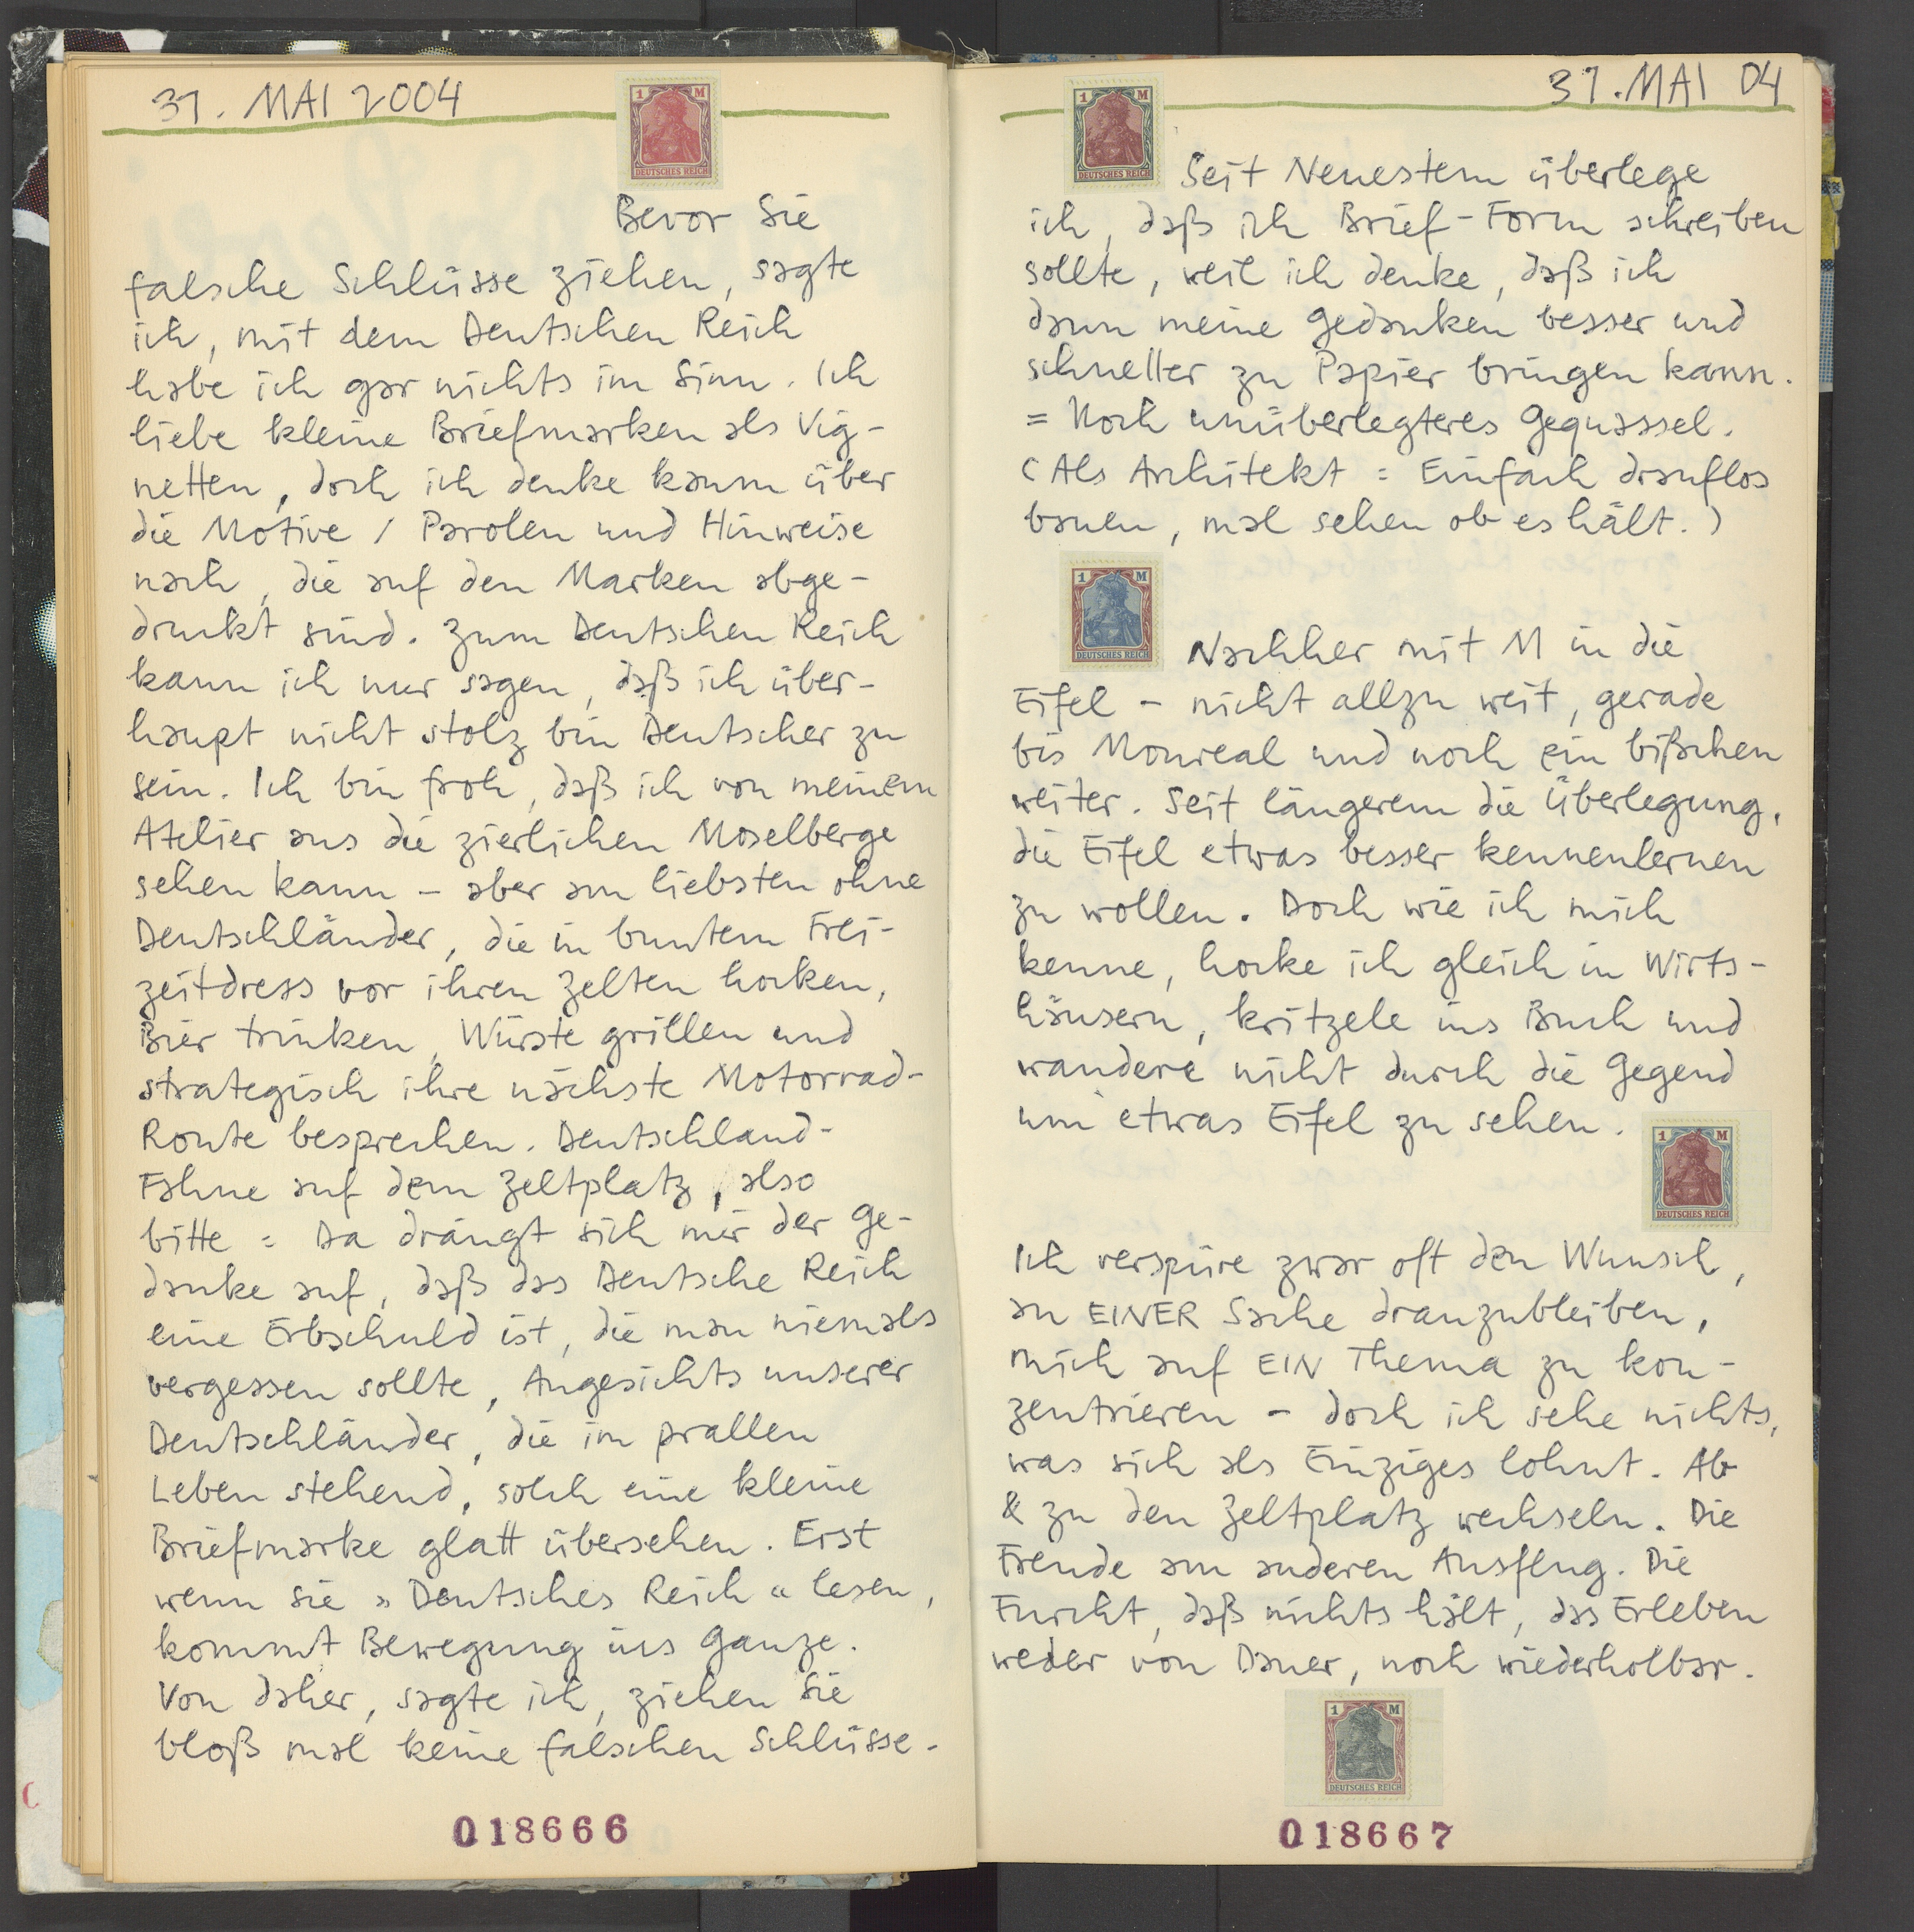 31. MAI 2004
1 M
DEUTSCHES REICH
Bevor Sie
falsche Schlüsse ziehen, sagte
ich, mit dem Deutschen Reich
habe ich gar nichts im Sinn. Ich
liebe kleine Briefmarken als Vig-
netten, doch ich denke kaum über
die Motive / Parolen und Hinweise
nach, die auf den Marken abge-
druckt sind. Zum Deutschen Reich
kann ich nur sagen, daß ich über-
haupt nicht stolz bin Deutscher zu
sein. Ich bin froh, daß ich von meinem
Atelier aus die zierlichen Moselberge
sehen kann – aber am liebsten ohne
Deutschländer, die in buntem Frei-
zeitdress vor ihren Zelten hocken,
Bier trinken, Würste grillen und
strategisch ihre nächste Motorrad-
Route besprechen. Deutschland-
Fahne auf dem Zeltplatz, also
bitte = Da drängt sich mir der Ge-
danke auf, daß das Deutsche Reich
eine Erbschuld ist, die man niemals
vergessen sollte, Angesichts unserer
Deutschländer, die im prallen
Leben stehend, solch eine kleine
Briefmarke glatt übersehen. Erst
wenn sie »Deutsches Reich« lesen,
kommt Bewegung ins Ganze.
Von daher, sagte ich, ziehen Sie
bloß mal keine falschen Schlüsse.
018666
31. MAI 04
1 M
DEUTSCHES REICH
Seit Neuestem überlege
ich, daß ich Brief-Form schreiben
sollte, weil ich denke, daß ich
dann meine Gedanken besser und
schneller zu Papier bringen kann.
= Noch unüberlegteres Gequassel.
(Als Architekt = Einfach drauflos
bauen, mal sehen ob es hält.)
1 M
DEUTSCHES REICH
Nachher mit M in die
Eifel – nicht allzu weit, gerade
bis Monreal und noch ein bißchen
weiter. Seit längerem die Überlegung,
die Eifel etwas besser kennenlernen
zu wollen. Doch wie ich mich
kenne, hocke ich gleich in Wirts-
häusern, kritzele ins Buch und
wandere nicht durch die Gegend
um etwas Eifel zu sehen.
1 M
DEUTSCHES REICH
Ich verspüre zwar oft den Wunsch,
an EINER Sache dranzubleiben,
mich auf EIN Thema zu kon-
zentrieren – doch ich sehe nichts,
was sich als Einziges lohnt. Ab
& zu den Zeltplatz wechseln. Die
Freude am anderen Ausflug. Die
Furcht, daß nichts hält, das Erleben
weder von Dauer, noch wiederholbar.
1 M
DEUTSCHES REICH
018667